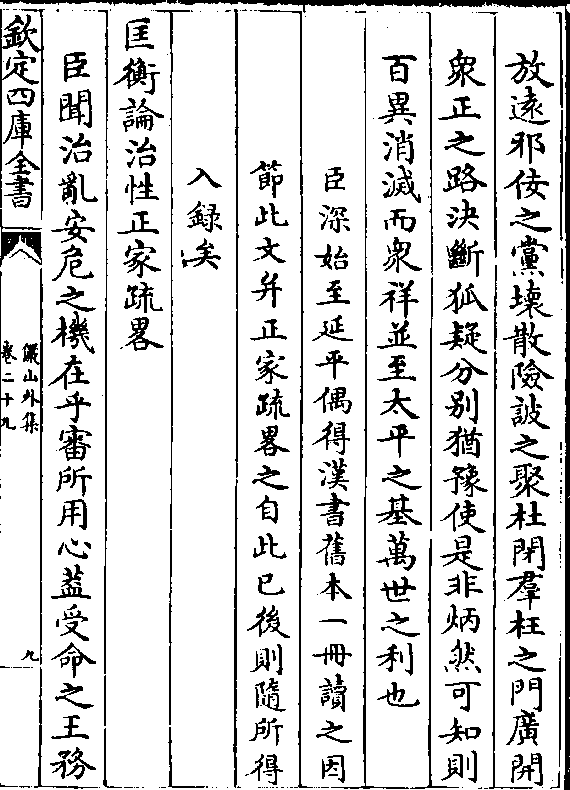 放遠邪佞之黨壊散險詖之聚杜閉羣枉之門廣開
衆正之路決斷狐疑分别猶豫使是非炳然可知則
百異消滅而衆祥並至太平之基萬世之利也
臣深始至延平偶得漢書舊本一冊讀之因
節此文并正家疏畧之自此已後則隨所得
入録矣
匡衡論治性正家疏畧
臣聞治亂安危之機在乎審所用心葢受命之王務
欽定四庫全書
儼山外集
卷二十九
九